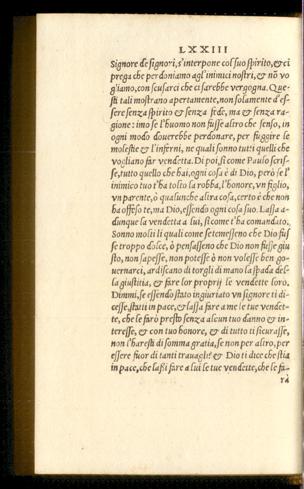 LXXIII
Signore de signori, s'interpone col suo spirito, & ci
prega che perdoniamo agl'inimici nostri, & nō vo
gliamo, con scusarci che ci sarebbe vergogna. Que-
sti tali mostrano apertamente, non solamente d'es-
sere senza spirito & senza fede, ma & senza ra-
gione: imo se l'huomo non fusse altro che senso, in
ogni modo doverebbe perdonare, per fuggire le
molestie & l'inferni, ne quali sonno tutti quelli che
vogliano far vendetta. Di poi, sí come Paulo scris-
se, tutto quello che hai, ogni cosa é di Dio, peró se l'i
nimico tuo t'ha tolto la robba, l'honore, un figlio,
un parente, ó qualunche altra cosa, certo é che non
ha offeso te, ma Dio, essendo ogni cosa suo. Lassa a-
dunque la vendetta a lui, sí come t'ha comandato.
Sonno molti li quali come se temesseno che Dio fus
se troppo dolce, ó pensasseno che Dio non fusse giu
sto, non sapesse, non potesse ó non volesse ben go-
vernarci, ardiscano di torgli di mano la spada del-
la giustitia, & fare lor proprij le vendette loro.
Dimmi, se essendo stato ingiuriato un signore ti di-
cesse, statti in pace, & lassa fare a me le tue vendet-
te, che le faró presto senza alcun tuo danno & in-
teresse, & con tuo honore, & di tutto ti sicurasse,
non l'haresti di somma gratia, se non per altro, per
essere fuor di tanti travagli? & Dio ti dice che stia
in pace, che lassi fare a lui le tue vendette, che le fa-
rá